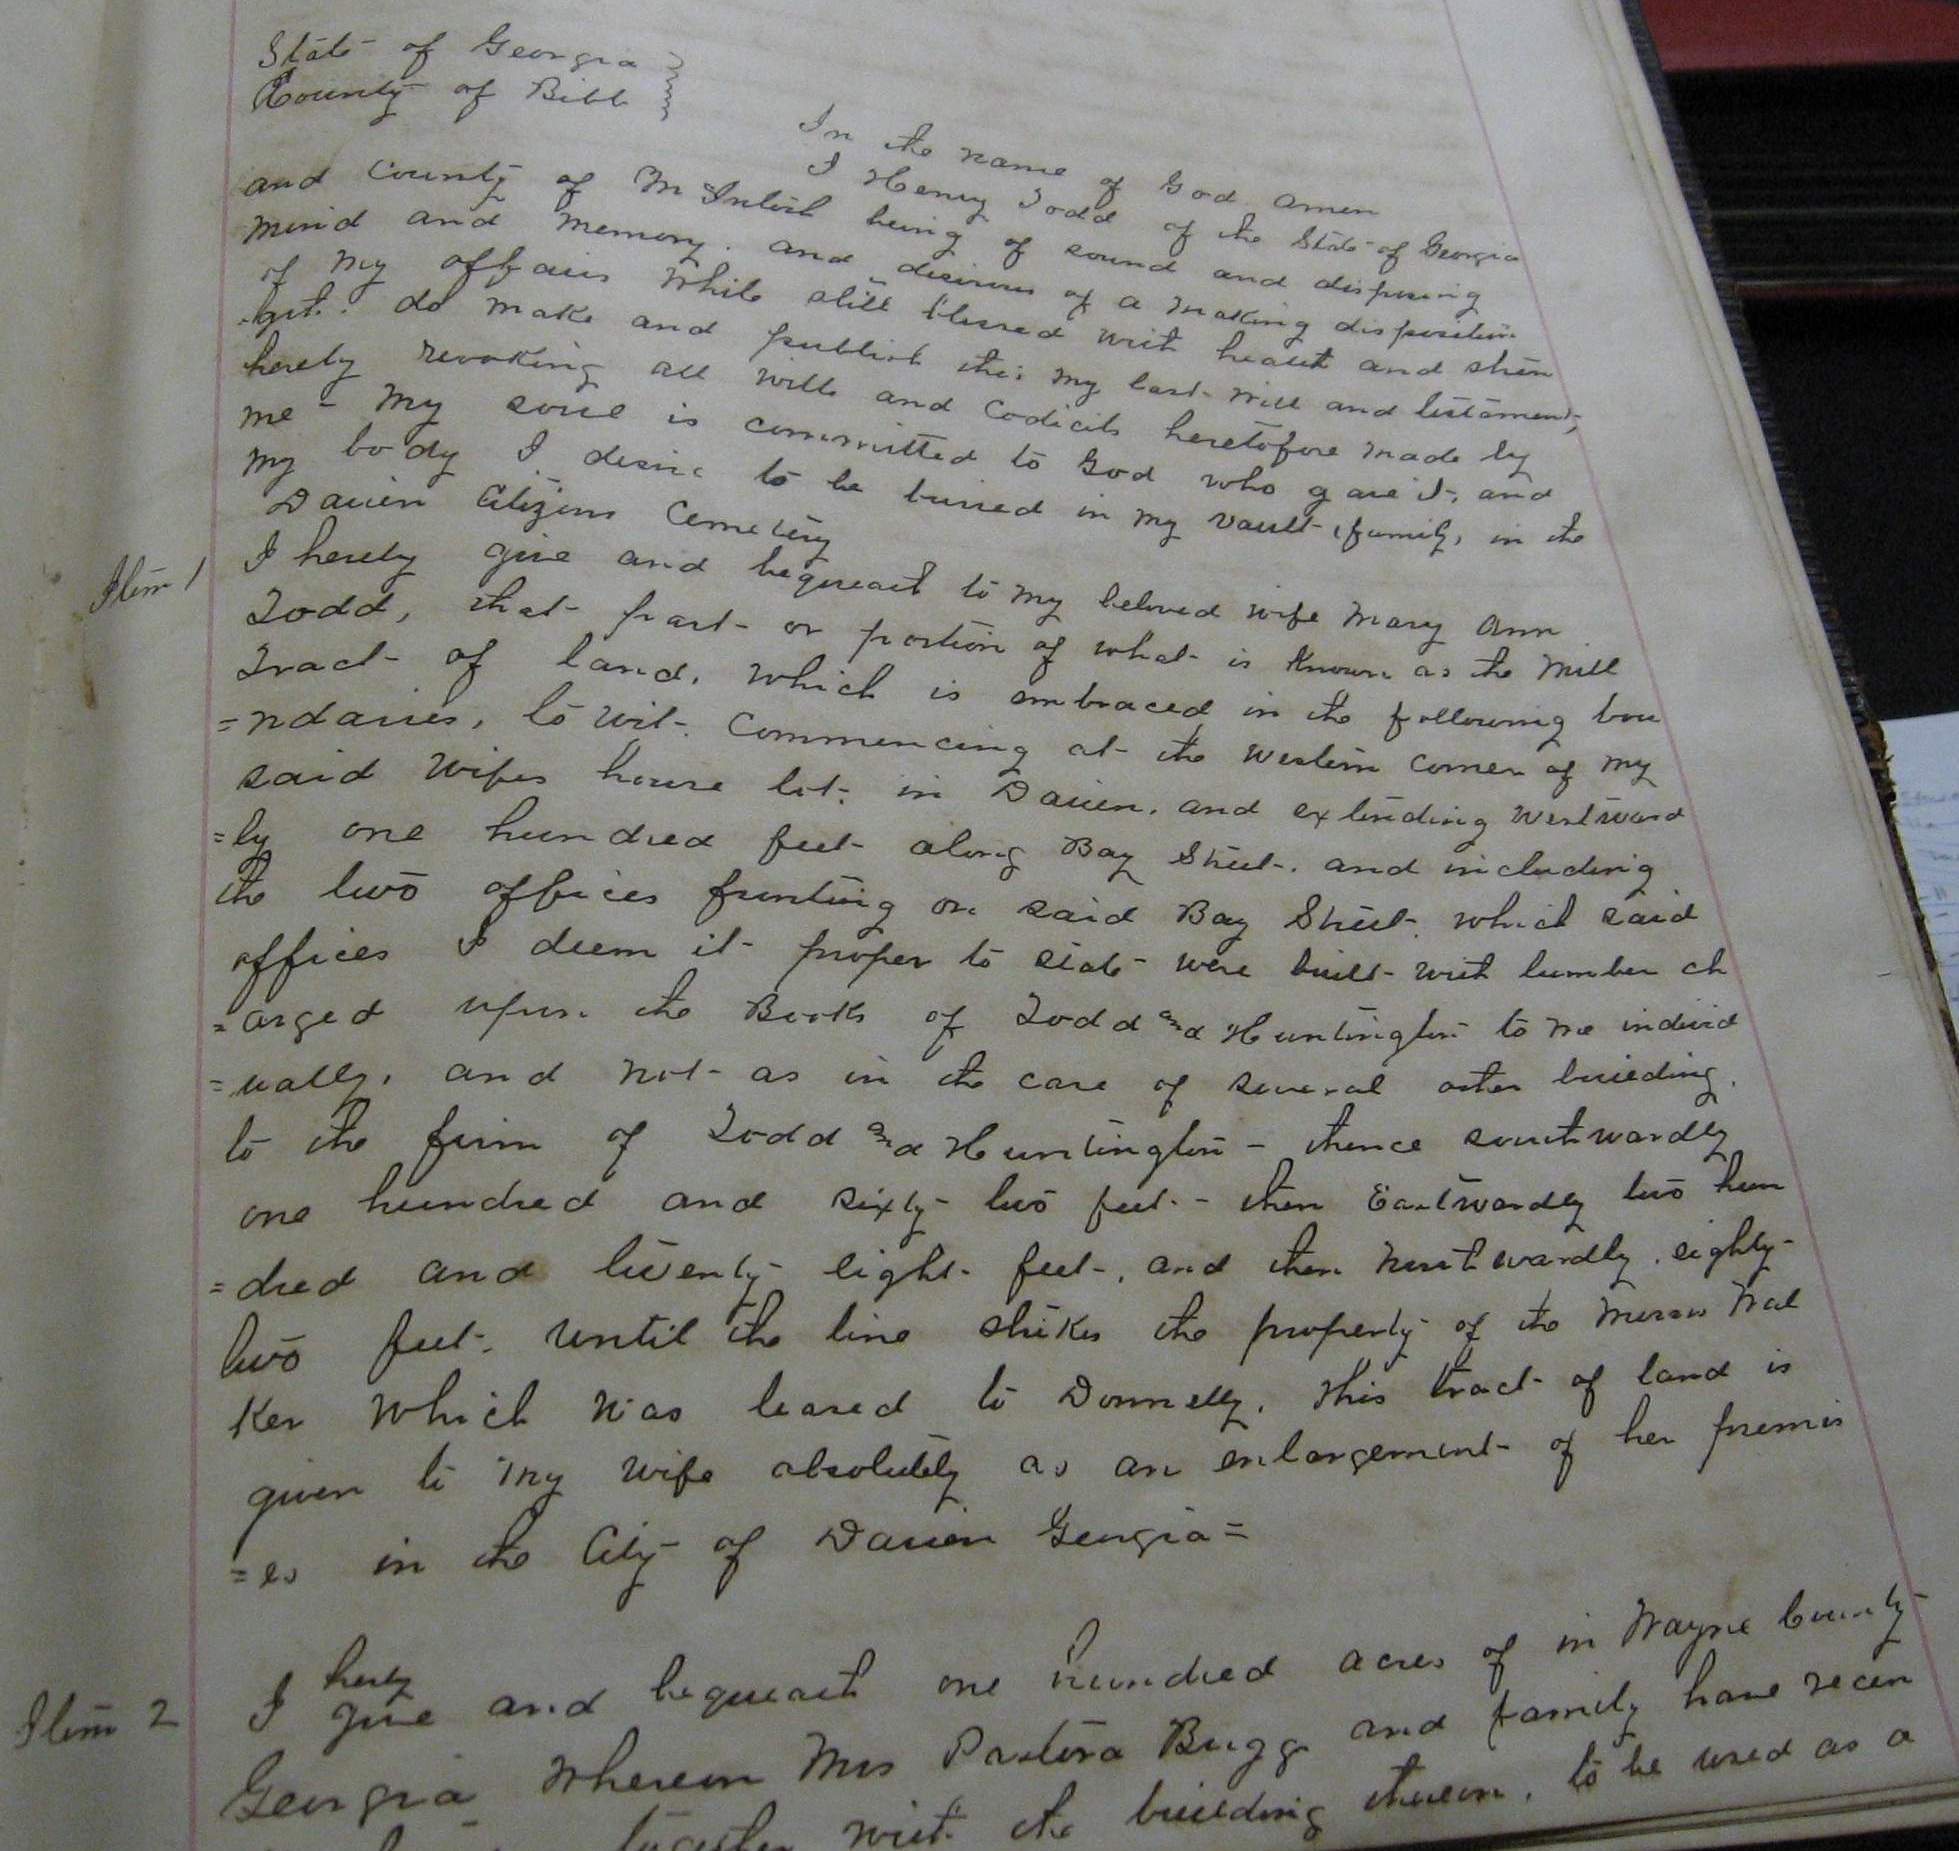 State of Georgia
County of Bibb
In the name of God amen
I Henry Todd of the State of Georgia
and County of McIntosh being of sound and disposing
mind and memory. and desirous of a making disposition
of my affairs while still blessed with health and stren
-gth. do make and publish this my last will and testament,
hereby revoking all wills and Codicils heretofore made by
me - My soul is committed to God who gave it, and
my body I desire to be buried in my vault (family) in the
Darien Citizens Cemetery
Item 1 I hereby give and bequeath to my beloved wife Mary Ann
Todd, that part or portion of what is known as the Mill
Tract of land, which is embraced in the following bou
=ndaries, to wit. Commencing at the western corner of my
said wifes house lot. in Darien. and extending westward
=ly one hundred feet along Bay Street. and including
the two offices frunting on said Bay Street. which said
offices I deem it proper to state were built with lumber ch
=arged upon the Books of Todd and Huntington to me individ
=ually, and not as in the case of several other building.
to the firm of Todd and Huntington - thence southwardly
one hundred and sixty two feet - then Eastwardly two hun
=dred and twenty eight feet, and then northwardly. eighty-
two feet. until the line strikes the property of the Messrs Wal
ker which was leased to Donnelly. This tract of land is
given to my wife absolutely as an enlargement of her premis
=es in the City of Darien Georgia =
Item 2 I hereby give and bequeath one hundred acres of in Wayne County
Georgia wherein Mrs Pastora Bugg and family have recen
together with the building therein. to be used as a